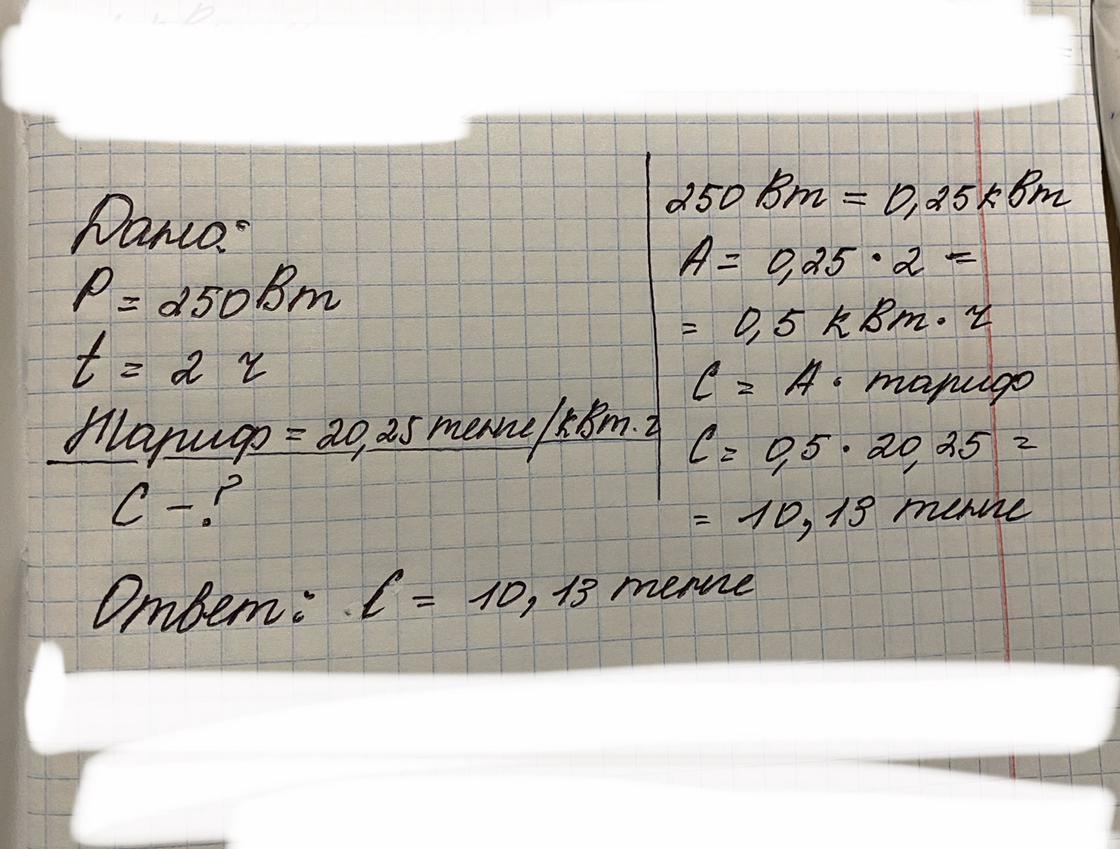 Дано:
P = 250 Вт
t = 2 ч
Тариф = 20,25 тенге/кВт·ч
C - ?
250 Вт = 0,25 кВт
A = 0,25 · 2 =
= 0,5 кВт·ч
C = A · тариф
C = 0,5 · 20,25 =
= 10,13 тенге
Ответ: C = 10,13 тенге